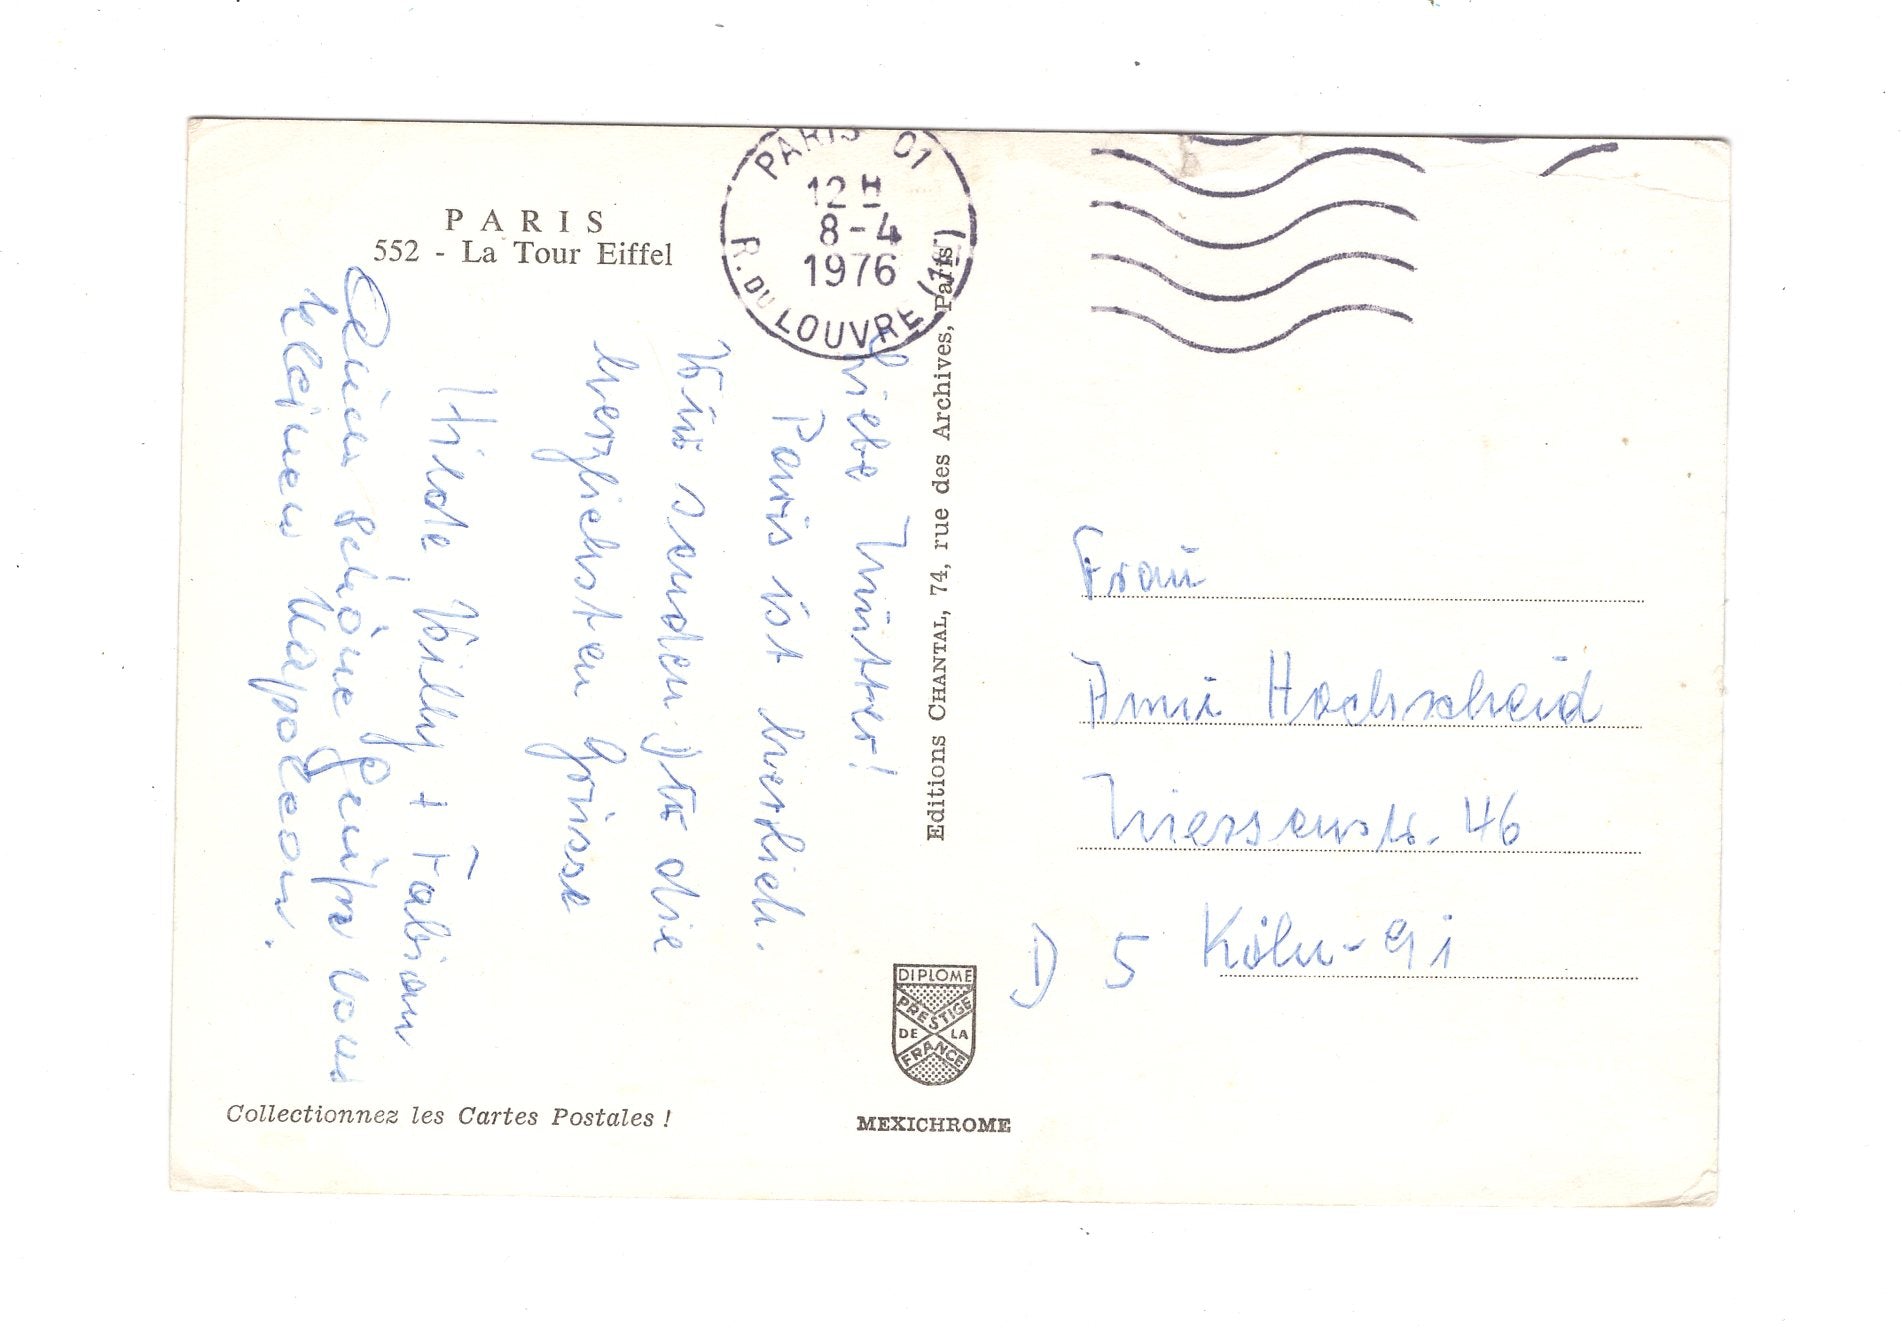 PARIS
552 - La Tour Eiffel
PARIS 01
12 H
8-4
1976
R. DU LOUVRE (1er)
Liebe Mutter!
Paris ist herrlich.
Wir senden Dir die
herzlichsten Grüsse
Hilde Willy + Fabian
Schöne Grüße vom
kleinen Napoleon.
Editions CHANTAL, 74, rue des Archives, Paris
Frau
Anni Hochscheid
Niessenstr. 46
D 5 Köln-91
DIPLOME
PRESTIGE
DE LA
FRANCE
Collectionnez les Cartes Postales !
MEXICHROME